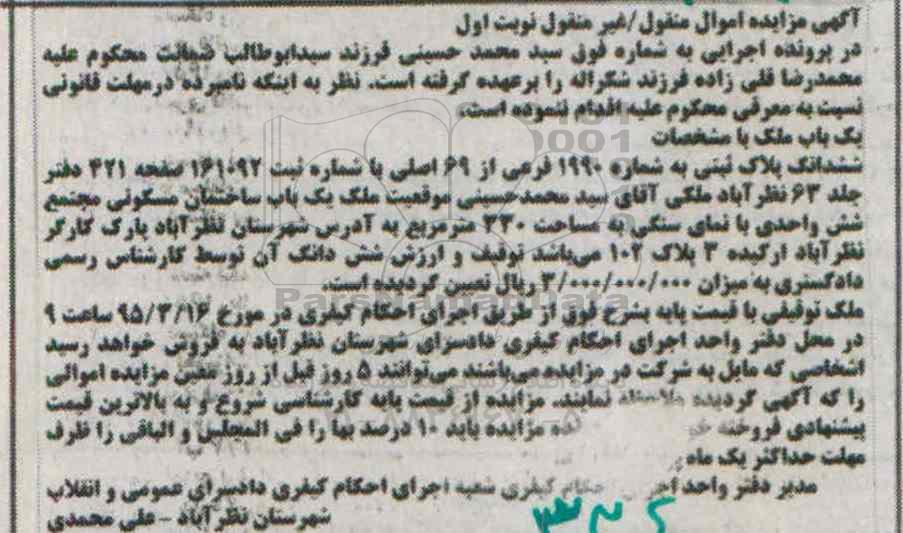 آگهی مزایده اموال منقول/غیر منقول نوبت اول
در پرونده اجرایی به شماره فوق سید محمد حسینی فرزند سیدابوطالب ضمانت محکوم علیه
محمدرضا قلی زاده فرزند شکراله را برعهده گرفته است. نظر به اینکه نامبرده درمهلت قانونی
نسبت به معرفی محکوم علیه اقدام ننموده است.
یک باب ملک با مشخصات
ششدانک پلاک ثبتی به شماره ۱۹۹۰ فرعی از ۶۹ اصلی با شماره ثبت ۱۶۱۰۹۲ صفحه ۴۲۱ دفتر
جلد ۶۳ نظر آباد ملکی آقای سید محمد حسینی موقعیت ملک یک باب ساختمان مسکونی مجتمع
شش واحدی با نمای سنگی به مساحت ۲۳۰ مترمربع به آدرس شهرستان نظر آباد پارک کارگر
نظر آباد ارکیده ۳ پلاک ۱۰۲ میباشد توقیف و ارزش شش دانک آن توسط کارشناس رسمی
دادگستری به میزان ۳/۰۰۰/۰۰۰/۰۰۰ ریال تعیین گردیده است.
ParsNamadData
ملک توقیفی با قیمت پایه بشرح فوق از طریق اجرای احکام کیفری در مورخ ۹۵/۳/۱۶ ساعت ۹
در محل دفتر واحد اجرای احکام کیفری دادسرای شهرستان نظر آباد به فروش خواهد رسید
اشخاصی که مایل به شرکت در مزایده میباشند می‌توانند ۵ روز قبل از روز معین مزایده اموالی
را که آگهی گردیده ملاحظه نمایند. مزایده از قیمت پایه کارشناسی شروع و به بالاترین قیمت
پیشنهادی فروخته مزایده باید ۱۰ درصد بها را فی المجلس و الباقی را ظرف
مهلت حداکثر یک ماه
مدیر دفتر واحد احکام کیفری شعبه اجرای احکام کیفری دادسرای عمومی و انقلاب
شهرستان نظر آباد - علی محمدی